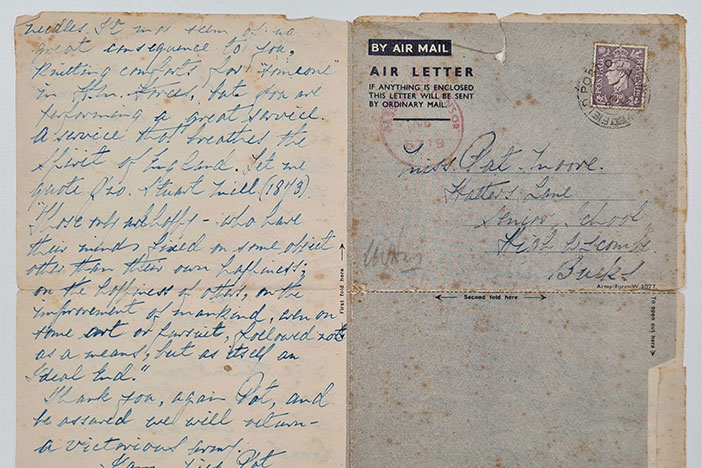 needles. It may seem of no
great consequence to you,
knitting comforts for "someone"
in H.M. Forces, but you are
performing a great service
a service that breathes the
spirit of England. Let me
quote Jno. Stuart Mill (1873).
"Those only are happy - who have
their minds fixed on some object
other than their own happiness;
on the happiness of others, on the
improvement of mankind, even on
some art or pursuit, followed not
as a means, but as itself an
Ideal End."
Thank you, again Pat, and
be assured we will return -
a victorious army.
I am, Miss Pat
BY AIR MAIL
AIR LETTER
IF ANYTHING IS ENCLOSED
THIS LETTER WILL BE SENT
BY ORDINARY MAIL.
POSTAGE
REVENUE
FIELD POST
Miss Pat Moore.
Hatters Lane
Senior School
High Wycombe
Bucks
Army Form W.3077
First fold here
Second fold here
To open cut here